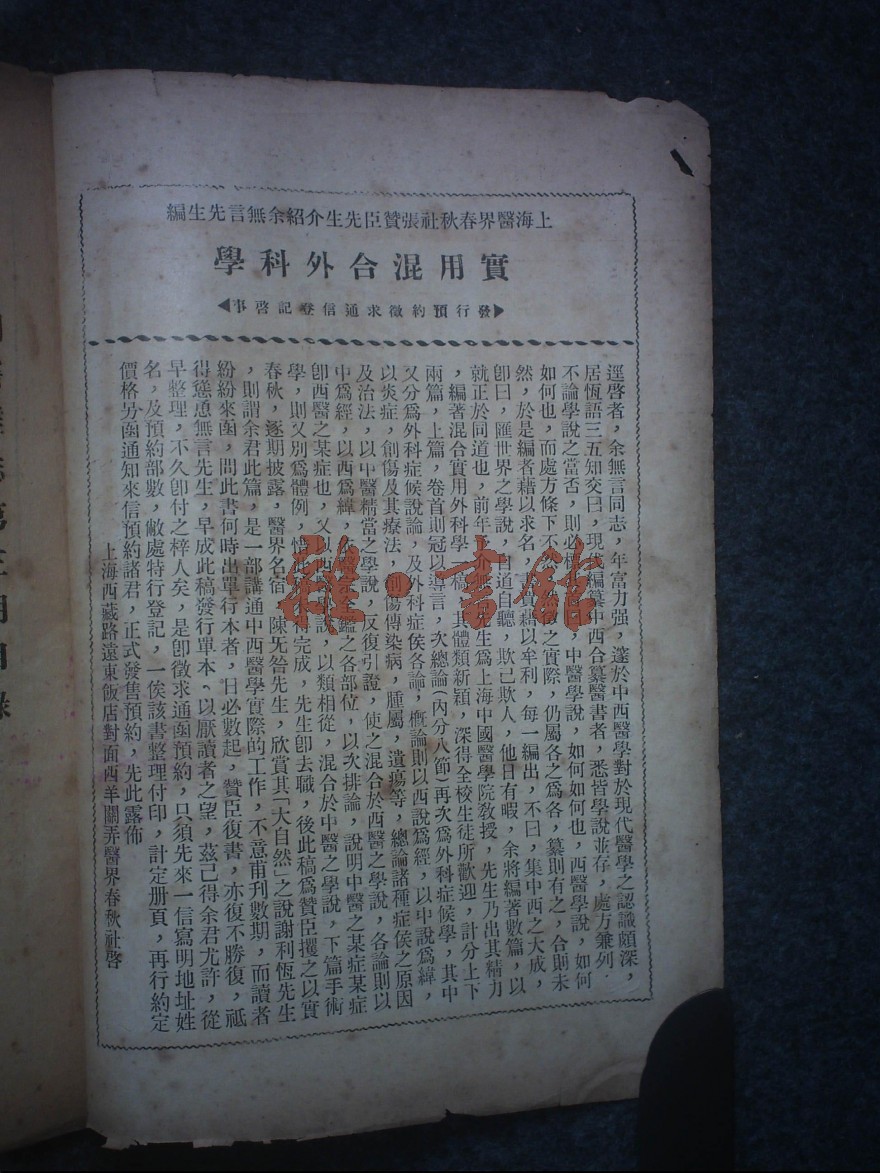 上海醫界春秋社張贊臣先生介紹余無言先生編
實用混合外科學
▶發行預約徵求通信登記啓事◀
逕啓者，余無言同志，年富力强，邃於中西醫學對於現代醫學之認識頗深，
居恆語三五知交曰，現代編纂中西合纂醫書者，悉皆學說並存，處方兼列．
不論學說之當否，則必 中醫學說，如何如何也，西醫學說，如何
如何也，而處方條下不 之實際，仍屬各之爲各，纂則有之，合則未
然，於是編者藉以求名， 藉以牟利，每一編出，不曰，集中西之大成，
卽曰，匯世界之學說，自道自聽，欺己欺人，他日有暇，余將編著數篇，以
就正於同道也，前年 介無言先生爲上海中國醫學院教授，先生乃出其精力
，編著混合實用外科學一稿，其體類新穎，深得全校生徒所歡迎，計分上下
兩篇，上篇，卷首則冠以導言，次總論（內分八節）再次爲外科症候學，其中
又分爲外科症候說論，及外科症候各論，概論則以西說爲經，以中說爲緯，
以炎症，創傷及其療法，創傷傳染病，腫屬，遺瘍等，總論諸種症侯之原因
及治法，以中醫精當之學說，反復引證，使之混合於西醫之學說，各論則以
中爲經，以西爲緯，依醫宗金鑑之各部位，以次排論，說明中醫之某症某症
卽西醫之某症也，又以西醫學說，以類相從，混合於中醫之學說，下篇手術
學，則又別爲體例，惜 得完成，先生卽去職，後此稿爲贊臣攫之以實
春秋，逐期披露，醫界名宿，陳旡咎先生，欣賞其「大自然」之說謝利恆先生
，則謂余君此篇，是一部講通中西醫學實際的工作，不意甫刋數期，而讀者
紛紛來函，問此書何時出單行本者，日必數起，贊臣復書，亦復不勝復，祗
得慫恿無言先生，早成此稿發行單本、以厭讀者之望，茲已得余君尤許，從
早整理，不久卽付之梓人矣，是卽徵求通函預約，只須先來一信寫明地址姓
名，及預約部數，敝處特行登記，一俟該書整理付印，計定册頁，再行約定
價格另函通知來信預約諸君，正式發售預約，先此露佈
上海西藏路遠東飯店對面西羊關弄醫界春秋社啓
雜·書館